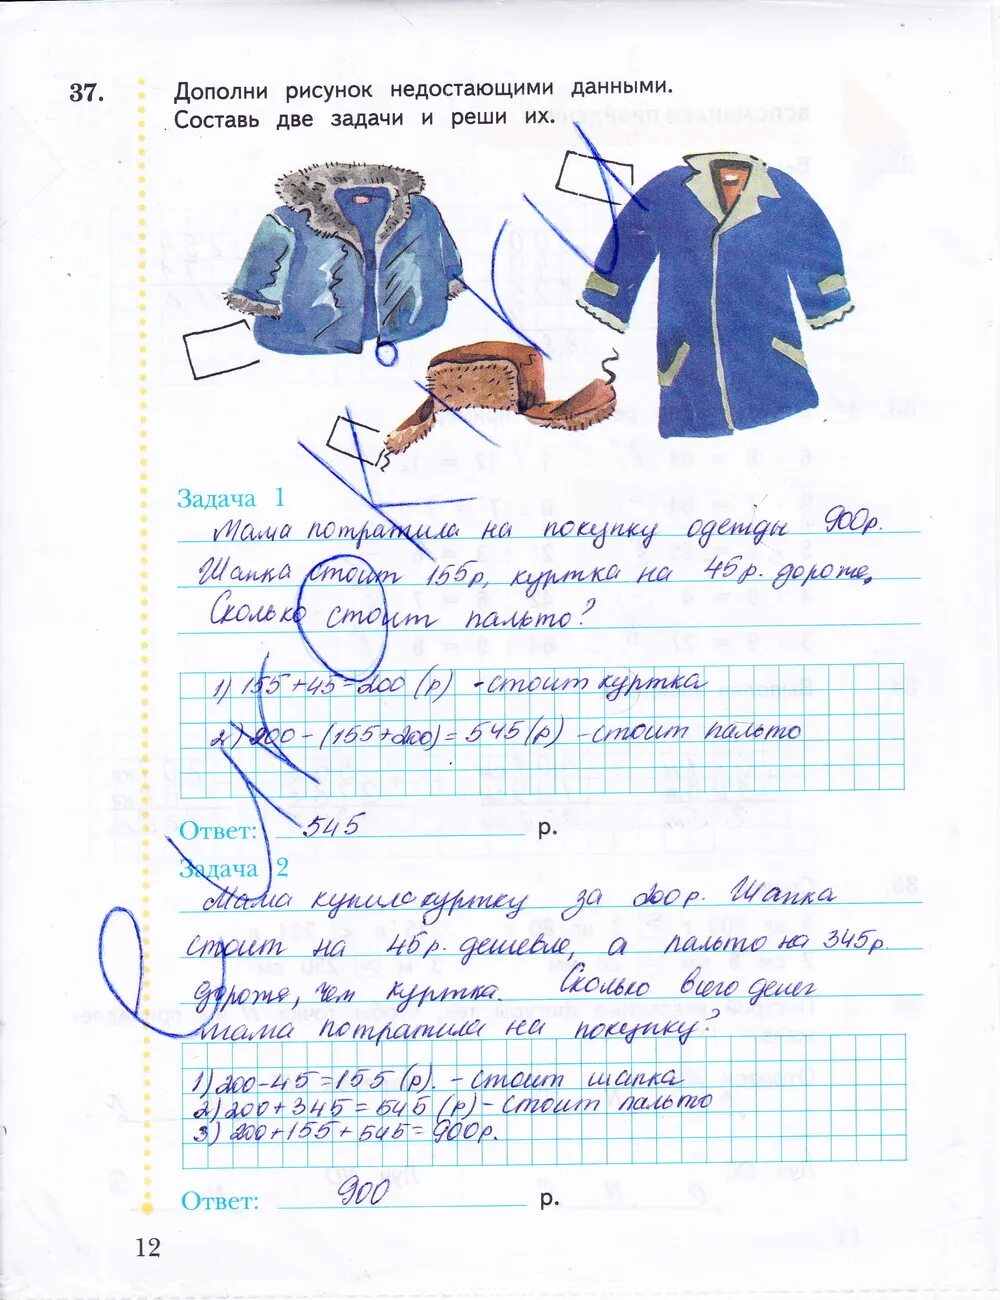 37.
Дополни рисунок недостающими данными.
Составь две задачи и реши их.
Задача 1
Мама потратила на покупку одежды 900р.
Шапка стоит 155р, куртка на 45р. дороже.
Сколько стоит пальто?
1) 155+45=200 (р) - стоит куртка
2) 900-(155+200)=545(р) - стоит пальто
Ответ: 545 р.
Задача 2
Мама купила куртку за 200р. Шапка
стоит на 45р. дешевле, а пальто на 345р.
дороже, чем куртка. Сколько всего денег
мама потратила на покупку?
1) 200-45=155 (р). - стоит шапка
2) 200+345=545 (р) - стоит пальто
3) 200+155+545=900р.
Ответ: 900 р.
12